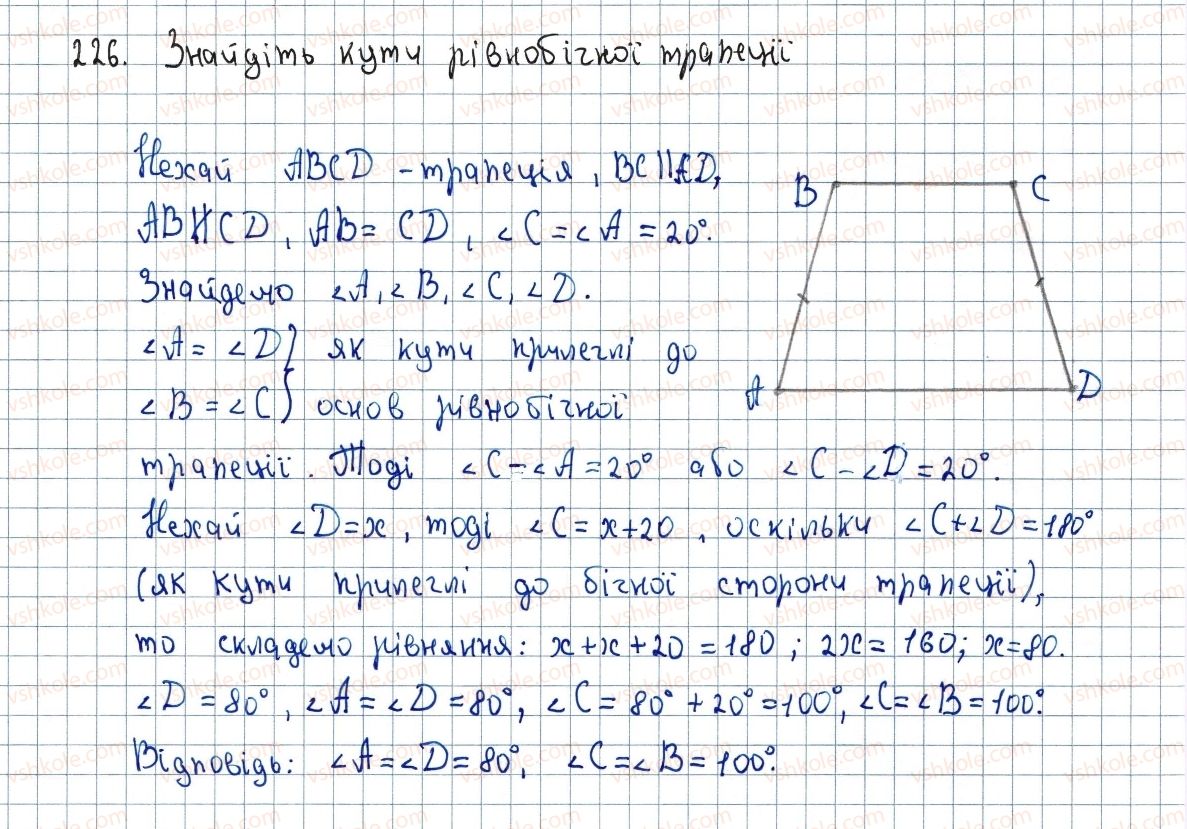 226. Знайдіть кути рівнобічної трапеції
Нехай ABCD - трапеція, BC||AD,
AB∦CD, AB = CD, ∠C = ∠A = 20°.
Знайдемо ∠A, ∠B, ∠C, ∠D.
∠A = ∠D } як кути прилеглі до
∠B = ∠C } основ рівнобічної
трапеції. Тоді ∠C - ∠A = 20° або ∠C - ∠D = 20°.
Нехай ∠D = x, тоді ∠C = x + 20, оскільки ∠C + ∠D = 180°
(як кути прилеглі до бічної сторони трапеції),
то складемо рівняння: x + x + 20 = 180; 2x = 160; x = 80.
∠D = 80°, ∠A = ∠D = 80°, ∠C = 80° + 20° = 100°, ∠C = ∠B = 100°.
Відповідь: ∠A = ∠D = 80°, ∠C = ∠B = 100°.
B C
A D
vshkole.com